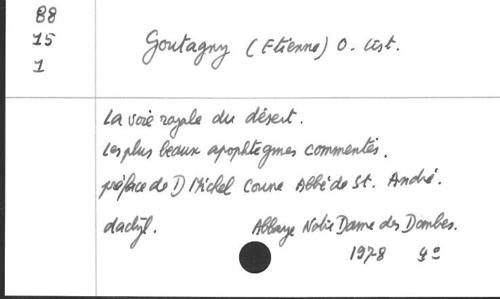 88
15
1
Goutagny (Etienne) O. cist.
La voie royale du désert.
Les plus beaux apophtegmes commentés.
préface de D Michel Coune Abbé de St. André.
dactyl. Abbaye Notre Dame des Dombes.
1978 4º